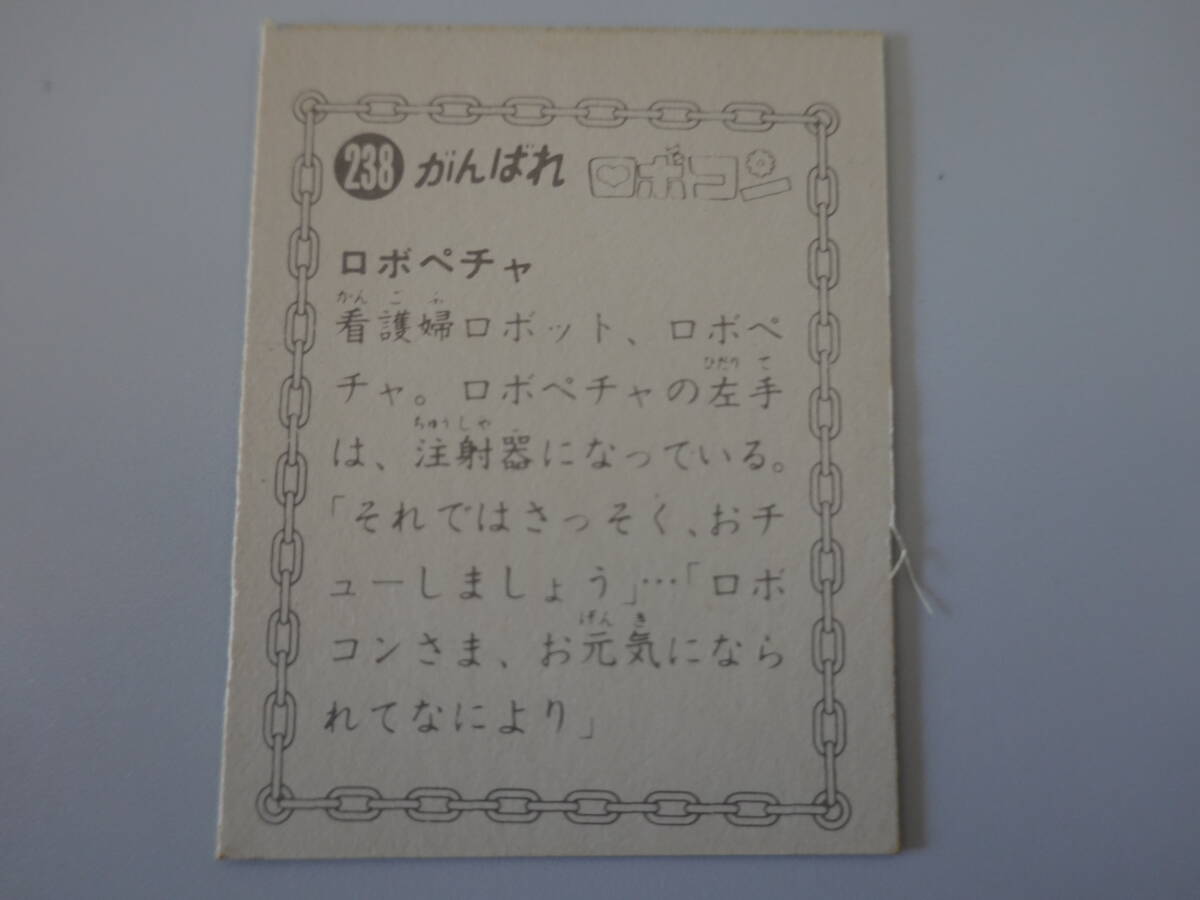 238 がんばれ ロボコン
ロボペチャ
かんごふ
看護婦ロボット、ロボペ
ひだりて
チャ。ロボペチャの左手
ちゅうしゃ
は、注射器になっている。
「それではさっそく、おチ
ューしましょう」…「ロボ
げんき
コンさま、お元気になら
れてなにより」